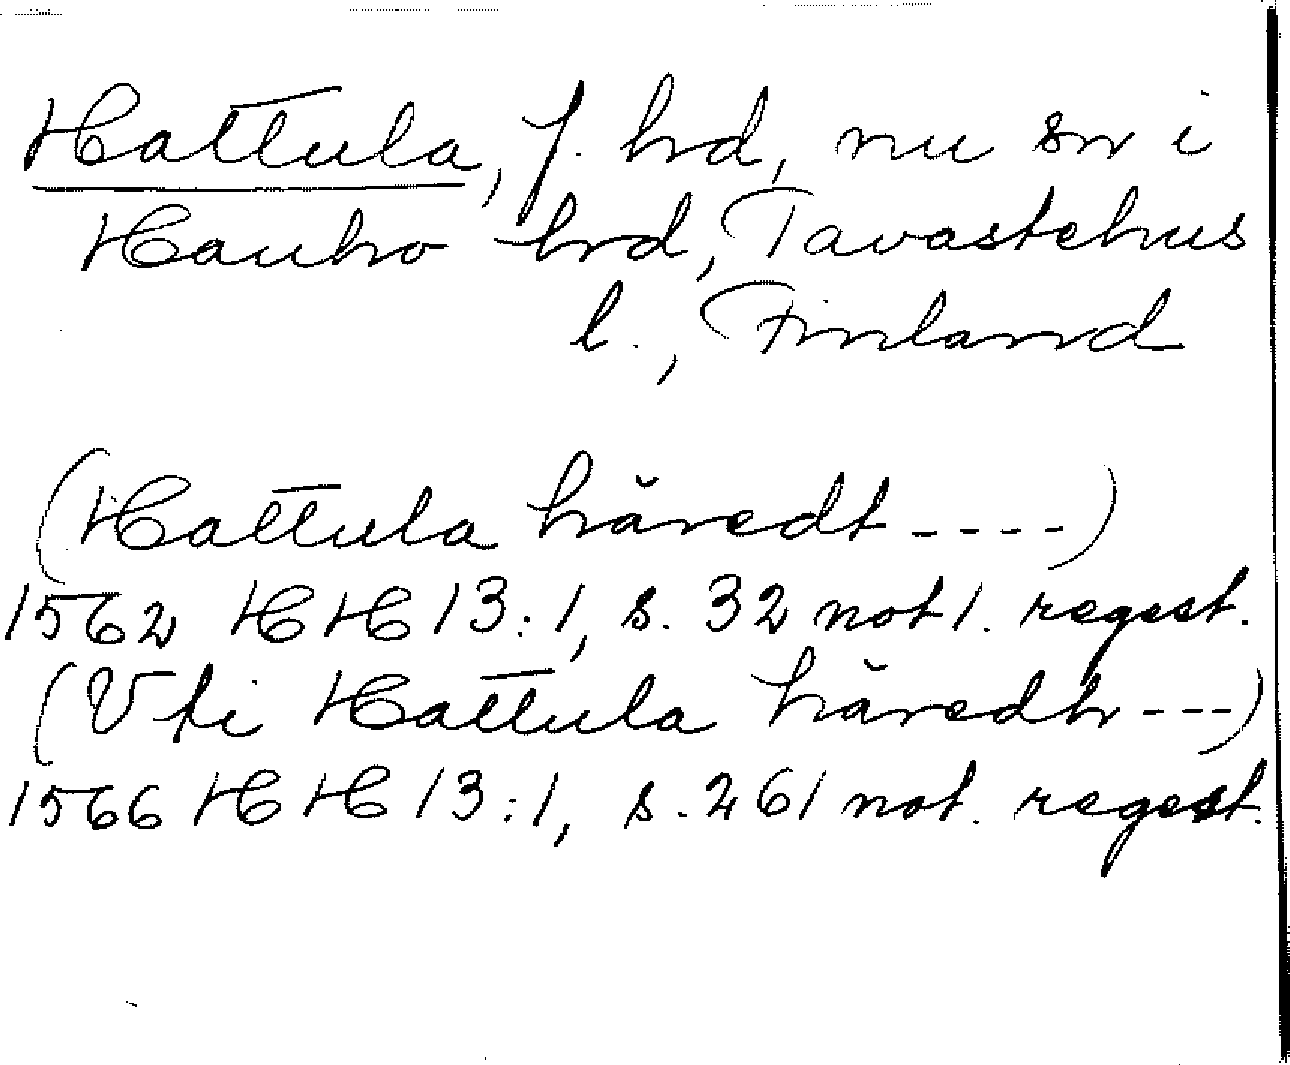 Hattula, f. hrd, nu sn i
Hauho hrd, Tavastehus
l., Finland
(Hattula håredt ----)
1562 HH 13:1, s. 32 not 1. regest.
(Vti Hattula håredh ---)
1566 HH 13:1, s. 261 not. regest.